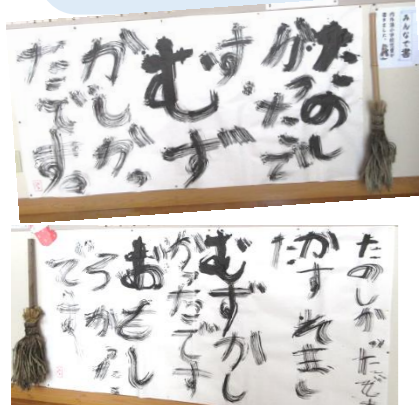 みんなで書
たのし
かったで
す
むず
かしかっ
たです
たのしかったです
かすれまし
た
むずかし
かったです
おもし
ろかった
です